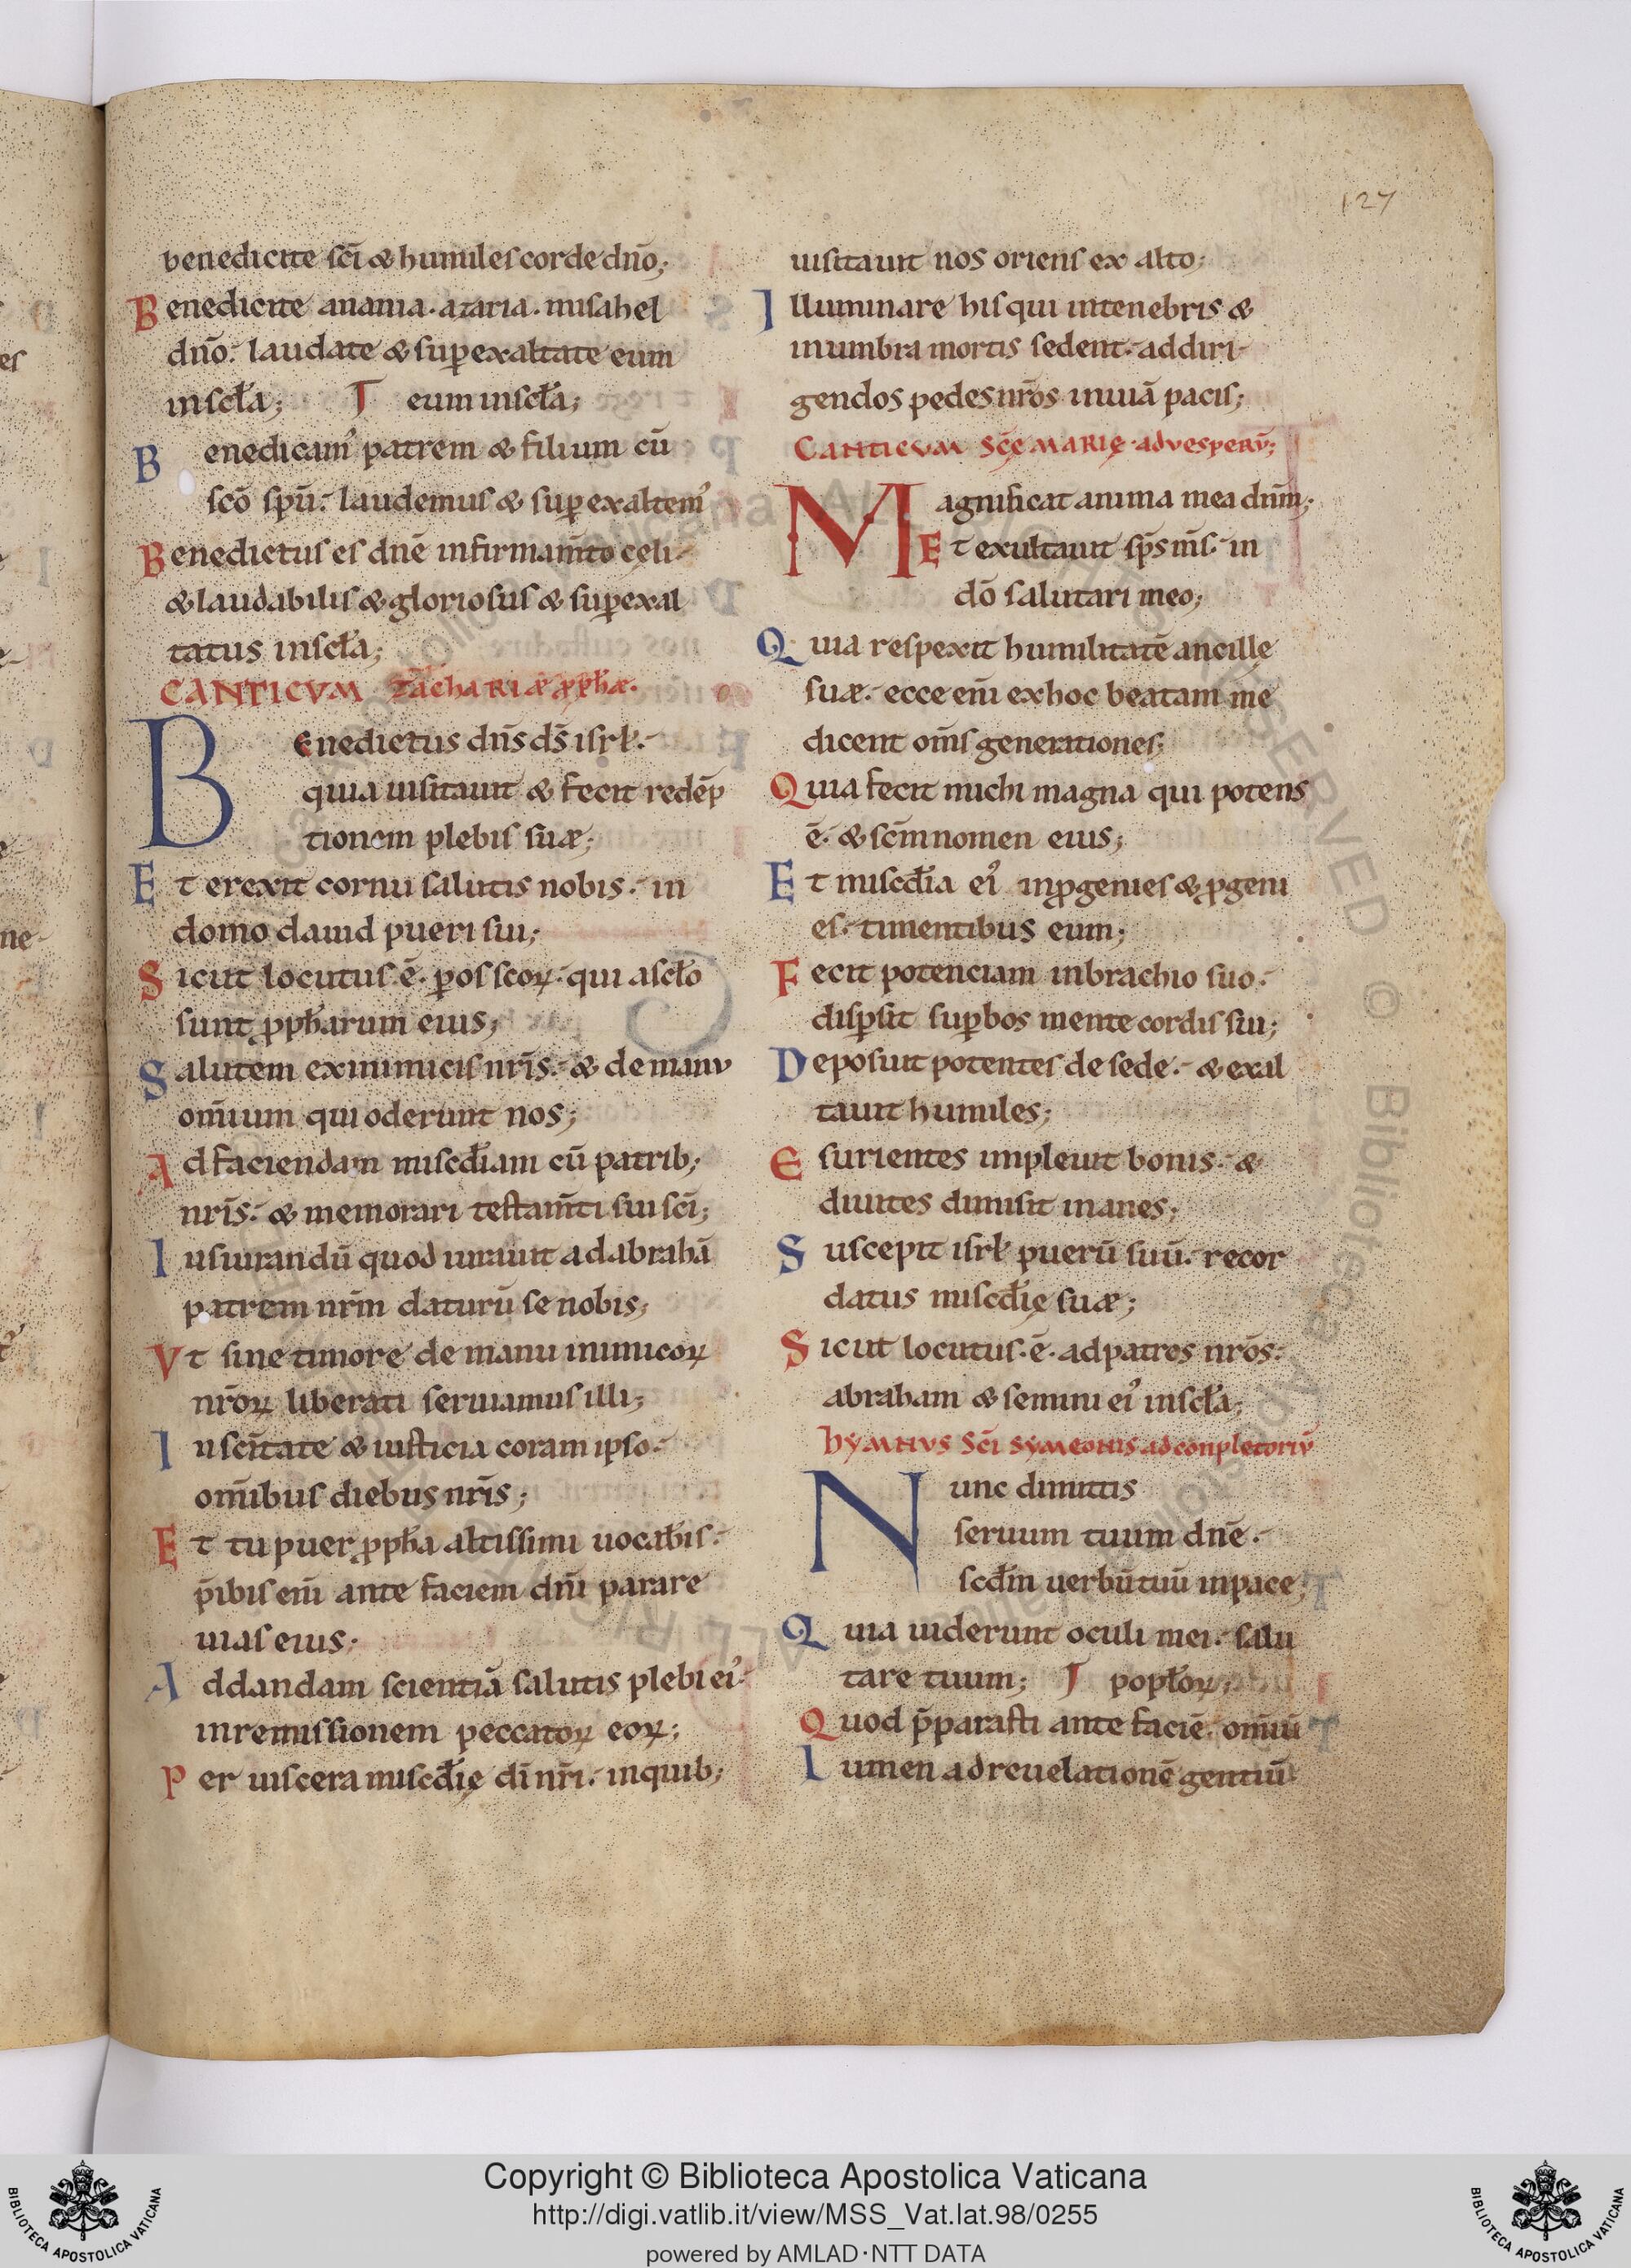 127
benedicite sc̄i & humiles corde dn̄o;
Benedicite anania. azaria. misahel
dn̄o. laudate & suꝑexaltate eum
in sc̄la; T eum in sc̄la;
Benedicam᾽ patrem & filium cū
sc̄o sp̄u. laudemus & suꝑ exaltem᾽
Benedictus es dn̄e in firmam̄to cęli.
& laudabilis & gloriosus & suꝑexal
tatus in sc̄la;
CANTICVM Zachariæ ꝓph̄æ.
Benedictus dn̄s ds̄ isrł.
quia uisitauit & fecit redēp
tionem plebis suæ;
Et erexit cornu salutis nobis. in
domo dauid pueri sui;
Sicut locutus ē. ꝑ os sc̄oꝝ. qui a sc̄lo
sunt ꝓph̄arum eius;
Salutem ex inimicis nr̄is. & de manu
om̄ium qui oderunt nos;
Ad faciendam miscd̄iam cū patrib;
nr̄is. & memorari testam̄ti sui sc̄i;
Iusiurandū quod iurauit ad abrahā
patrem nr̄m daturū se nobis;
Vt sine timore de manu inimicoꝝ
nr̄oꝝ liberati seruiamus illi;
In sc̄itate & iusticia coram ipso.
om̄ibus diebus nr̄is;
Et tu puer ꝓph̄a altissimi uocab̄is.
p̄ibis eni̅ ante faciem dn̄i parare
uias eius;
Ad dandam scientiā salutis plebi ei᾽.
in remissionem peccatoꝝ eoꝝ;
Per uiscera miscd̄ię dī nr̄i. in quib;
uisitauit nos oriens ex alto;
Illuminare his qui in tenebris &
in umbra mortis sedent. ad diri
gendos pedes nr̄os in uiā pacis;
Canticvm Sc̄ę MARIę. ad vesperū;
Magnificat anima mea dn̄m;
Et exultauit sp̄s ms̄. in
dō salutari meo;
Quia respexit humilitatē ancillę
suæ. ecce eni̅ ex hoc beatam me
dicent om̄s generationes;
Quia fecit michi magna qui potens
ē. & sc̄m nomen eius;
Et miscd̄ia ei᾽ in ꝓgenies & ꝓgeni
es. timentibus eum;
Fecit potenciam in brachio suo.
disꝑsit suꝑbos mente cordis sui;
Deposuit potentes de sede. & exal
tauit humiles;
Esurientes impleuit bonis. &
diuites dimisit inanes;
Suscepit isrł puerū suū. recor
datus miscd̄ię suæ;
Sicut locutus. ē. ad patres nr̄os.
abraham & semini ei᾽ in sc̄la;
hymnvs Sc̄i Symeonis ad conpletoriū
Nunc dimittis
seruum tuum dn̄e.
scd̄m uerbū tuū in pace;
Quia uiderunt oculi mei. salu
tare tuum; T popl̄oꝝ;
Quod p̄parasti ante faciē. om̄iū
Lumen ad reuelationē gentiū
Copyright © Biblioteca Apostolica Vaticana
http://digi.vatlib.it/view/MSS_Vat.lat.98/0255
powered by AMLAD·NTT DATA
BIBLIOTECA APOSTOLICA VATICANA
BIBLIOTECA APOSTOLICA VATICANA